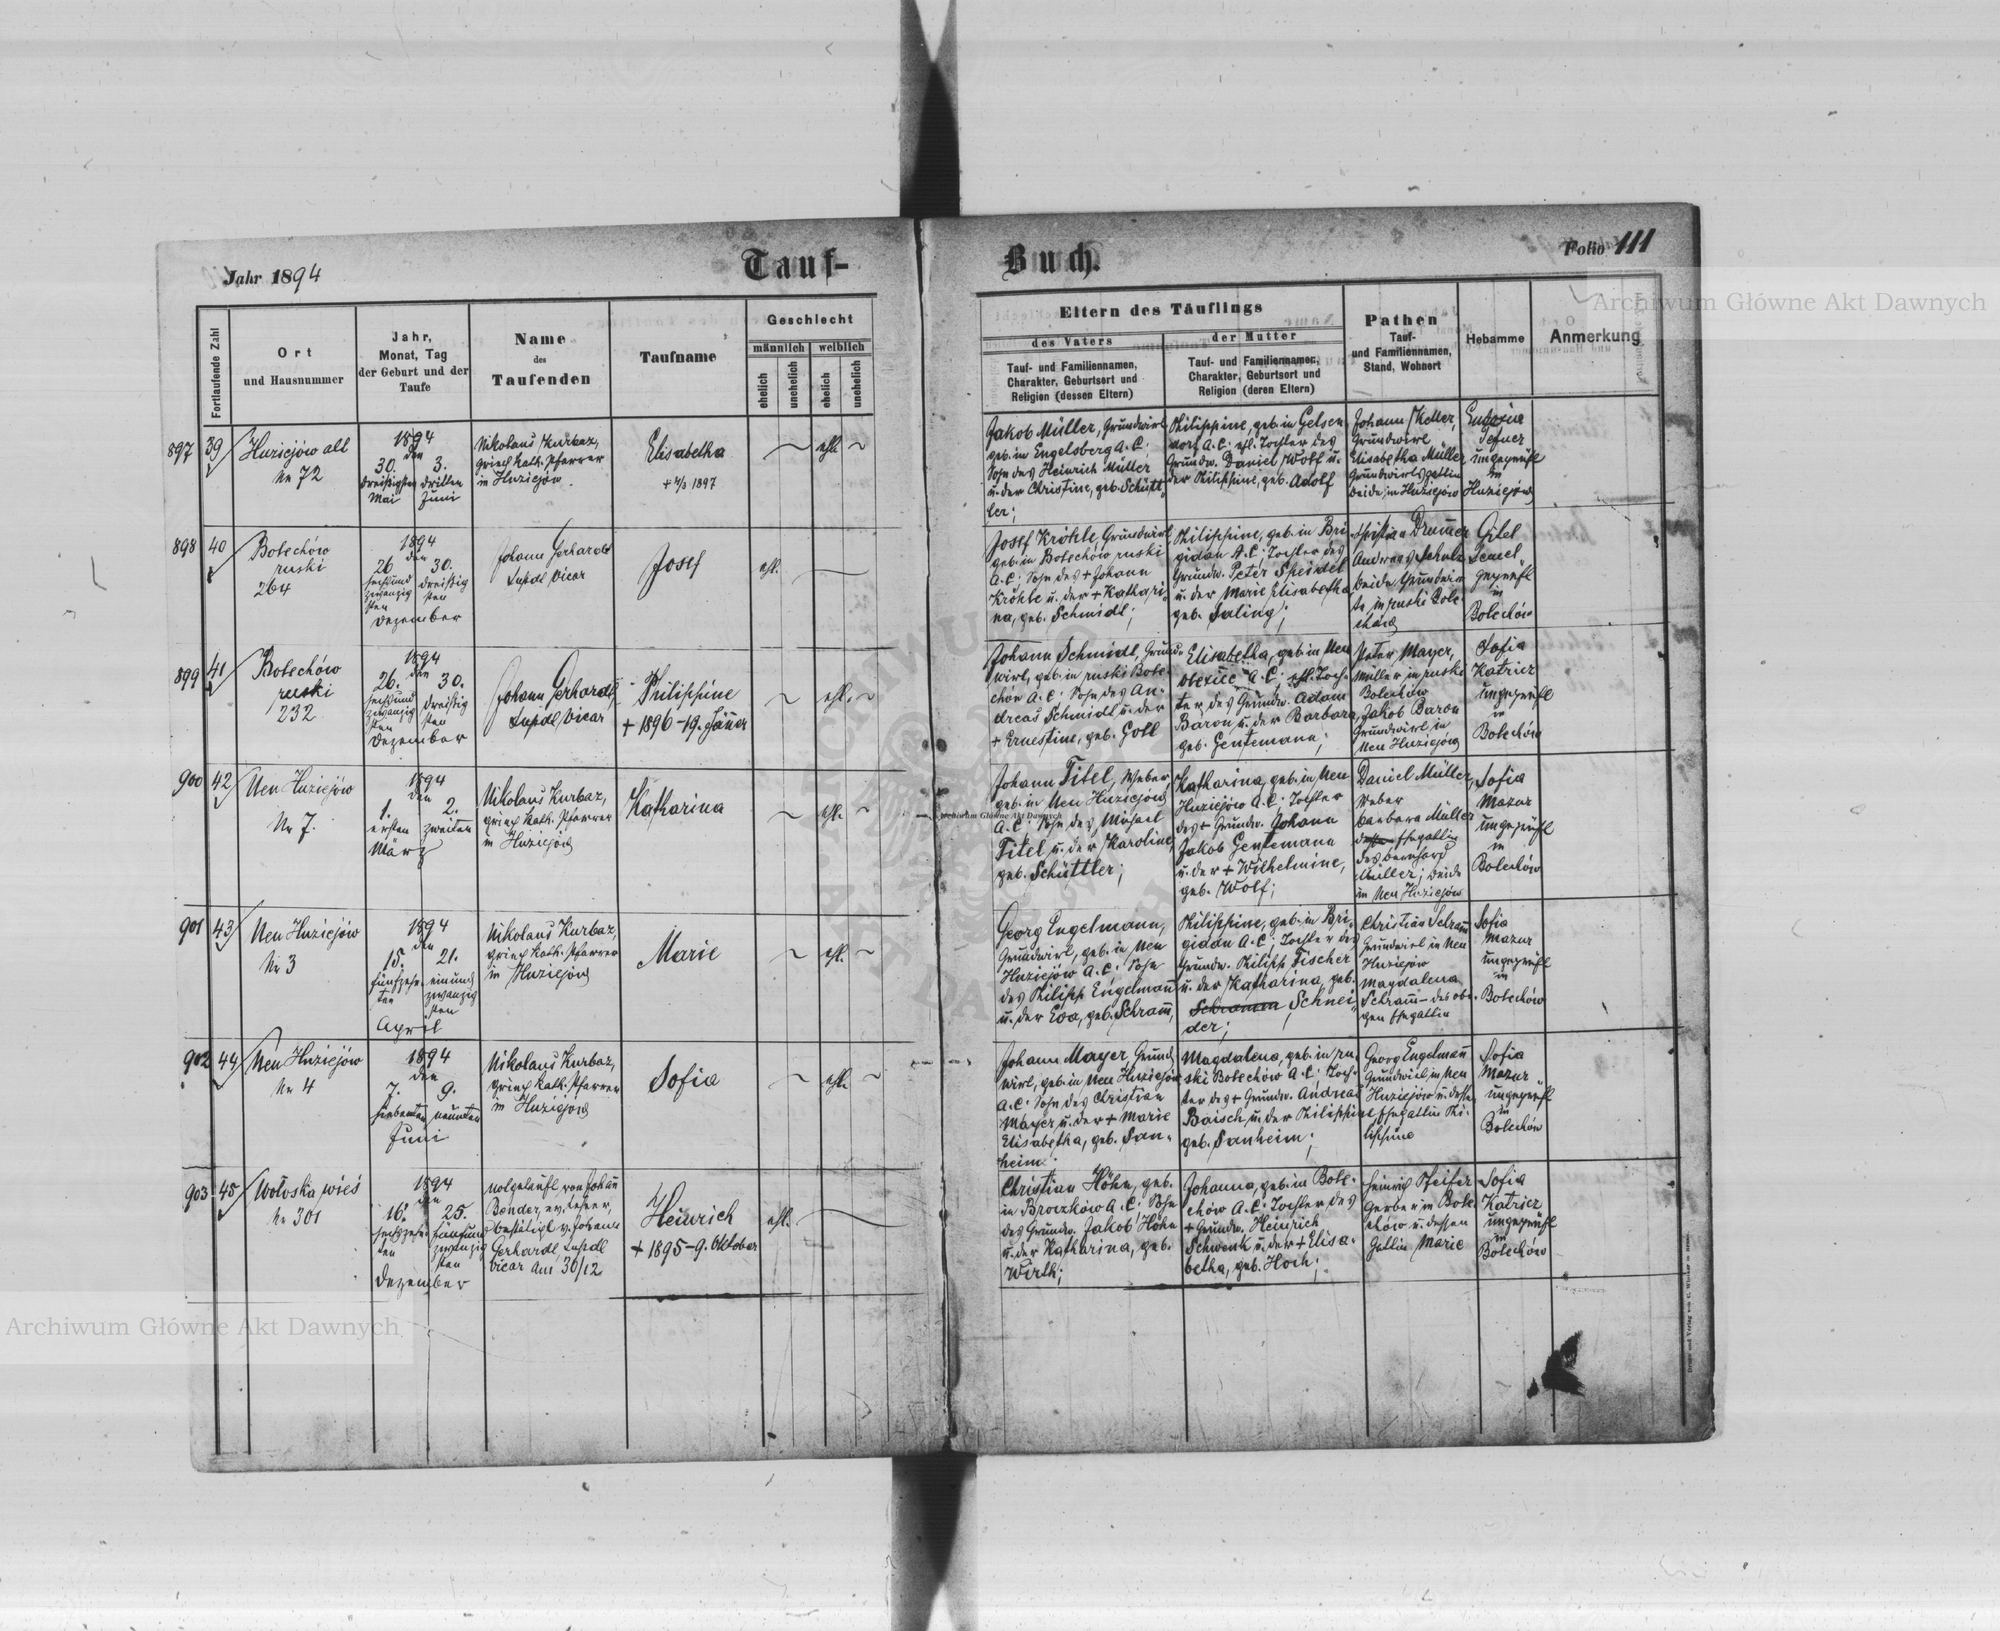 Jahr 1894
Tauf-
Buch.
Folio 111
Fortlaufende Zahl
Ort
und Hausnummer
Jahr,
Monat, Tag
der Geburt und der
Taufe
Name
des
Taufenden
Taufname
Geschlecht
männlich
weiblich
ehelich
unehelich
ehelich
unehelich
Eltern des Täuflings
des Vaters
der Mutter
Tauf- und Familiennamen,
Charakter, Geburtsort und
Religion (dessen Eltern)
Tauf- und Familiennamen,
Charakter, Geburtsort und
Religion (deren Eltern)
Pathen
Tauf-
und Familiennamen,
Stand, Wohnort
Hebamme
Anmerkung
897
39
Huziejów alt
Nr 72
1894
den
30. 3.
dreißigsten dritten
Mai Juni
Nikolaus Kurbaz,
griech. kath. Pfarrer
in Huziejów
Elisabetha
+ 4/3 1897
ehl.
Jakob Müller, Grundwirt
geb. in Engelsberg A.C.;
Sohn des Heinrich Müller
u. der Christine, geb. Schütt-
ler;
Philippine, geb. in Gelsen
dorf A.C.; ehl. Tochter des
Grundw. Daniel Wolf u.
der Philippine, geb. Adolf
Johann Keller,
Grundwirt
Elisabetha Müller
Grundwirtsgattin
beide in Huziejów
ungeprüft
in
Huziejów
898
40
Bolechów
ruski
264
1894
den
26 30.
sechsund dreißig
zwanzig sten
sten
Dezember
Johann Gerhardt
Supdl. Vicar
Josef
ehl.
Josef Kröhle, Grundwirt
geb. in Bolechów ruski
A.C.; Sohn des + Johann
Kröhle u. der + Kathari-
na, geb. Schmidt;
Philippine, geb. in Bri
gidau A.C.; Tochter des
Grundw. Peter Speidel
u. der Marie Elisabetha
geb. Saling;
Christian Drumer
Andreas Schulz
beide Grundwir
te in ruski Bole-
chów
Gitel
geprüft
in
Bolechów
899
41
Bolechów
ruski
232
1894
den
26. 30.
sechsund dreißig
zwanzig sten
sten
Dezember
Johann Gerhardt
Supdl. Vicar
Philippine
+ 1896 - 19. Jänner
ehl.
Johann Schmidt, Grund-
wirt, geb. in ruski Bole-
chów A.C.; Sohn des An-
dreas Schmidt u. der
+ Ernestine, geb. Goll
Elisabetha, geb. in Neu
A.C.; ehl. Toch-
ter des Grundw. Adam
Baron u. der Barbara,
geb. Gentemann;
Peter Mayer,
Müller in ruski
Bolechów
Jakob Baron
Grundwirt in
Neu Huziejów
Sofia
Katricz
ungeprüft
in
Bolechów
900
42
Neu Huziejów
Nr 7.
1894
den
1. 2.
ersten zweiten
März
Nikolaus Kurbaz,
griech. kath. Pfarrer
in Huziejów
Katharina
ehl.
Johann Titel, Weber,
geb. in Neu Huziejów
A.C.; Sohn des Michael
Titel u. der Karoline,
geb. Schüttler;
Katharina, geb. in Neu
Huziejów A.C.; Tochter
des + Grundw. Johann
Jakob Gentemann
u. der + Wilhelmine,
geb. Wolf;
Daniel Müller,
Weber
Barbara Müller
Ehegattin
des Bernhard
Müller; beide
in Neu Huziejów
Sofia
Mazur
ungeprüft
in
Bolechów
901
43
Neu Huziejów
Nr 3
1894
den
15. 21.
fünfzehn- einund
ten zwanzig
sten
April
Nikolaus Kurbaz,
griech. kath. Pfarrer
in Huziejów
Marie
ehl.
Georg Engelmann,
Grundwirt, geb. in Neu
Huziejów A.C.; Sohn
des Philipp Engelmann
u. der Eva, geb. Schram̄,
Philippine, geb. in Bri-
gidau A.C.; Tochter des
Grundw. Philipp Fischer
u. der Katharina, geb.
Schramm Schnei-
der;
Christian Schram̄
Grundwirt in Neu
Huziejów
Magdalena
Schram̄ - des obi-
gen Ehegattin
Sofia
Mazur
ungeprüft
in
Bolechów
902
44
Neu Huziejów
Nr 4
1894
den
7. 9.
siebenten neunten
Juni
Nikolaus Kurbaz,
griech. kath. Pfarrer
in Huziejów
Sofia
ehl.
Johann Mayer, Grund
wirt, geb. in Neu Huziejów
A.C.; Sohn des Christian
Mayer u. der + Marie
Elisabetha, geb. San-
heim.
Magdalena, geb. in ru-
ski Bolechów A.C.; Toch-
ter des + Grundw. Andreas
Baisch u. der Philippine
geb. Sanheim;
Georg Engelmañ
Grundwirt in Neu
Huziejów u. dessen
Ehegattin Phi-
lippine
Sofia
Mazur
ungeprüft
in
Bolechów
903
45
Wołoska wieś
Nr 301
1894
den
16. 25.
sechszehn- fünfund
ten zwanzig
sten
Dezember
notgetauft von Johañ
Bender, ev. Lehrer,
bestätigt v. Johann
Gerhardt Supdl
Vicar am 30/12
Heinrich
+ 1895 - 9. Oktober
ehl.
Christian Höhn, geb.
in Broczków A.C.; Sohn
des Grundw. Jakob Höhn
u. der Katharina, geb.
Wirth;
Johanna, geb. in Bole-
chów A.C.; Tochter des
+ Grundw. Heinrich
Schwenk u. der + Elisa-
betha, geb. Hoch;
Heinrich Pfeifer
Gerber in Bole
chów u. dessen
Gattin Marie
Sofia
Katricz
ungeprüft
in
Bolechów
Archiwum Główne Akt Dawnych
Archiwum Główne Akt Dawnych
Archiwum Główne Akt Dawnych